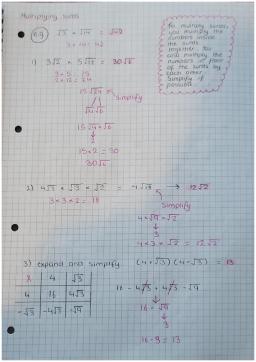 Multiplying surds
e.g √3 × √14 = √42
3 × 14 = 42
To multiply surds, you multiply the
numbers inside
the surds
together. You
can also multiply the
numbers in front
of the surds by
each other.
Simplify if
possible
1) 3√2 × 5√12 = 30√6
3 × 5 = 15
2 × 12 = 24
15√24 Simplify
√4 √6
15√4 × √6
2
15 × 2 = 30
30√6
2) 4√3 × √3 × √2 = 4√18 → 12√2
3 × 3 × 2 = 18
Simplify
4 × √9 × √2
3
4 × 3 × √2 = 12√2
3) expand and simplify (4+√3)(4-√3) = 13
× 4 √3
4 16 4√3
-√3 -4√3 -√9
16 - 4√3 + 4√3 - √9
16 - √9
3
16 - 3 = 13